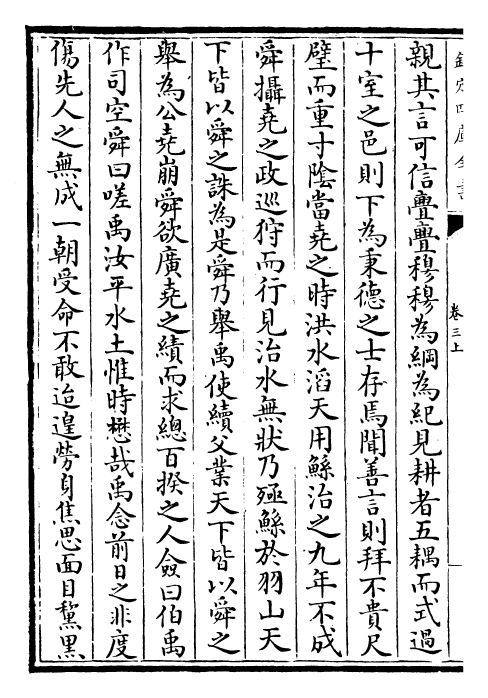 欽定四庫全書
卷三上
親其言可信亹亹穆穆為綱為紀見耕者五耦而式過
十室之邑則下為秉德之士存焉聞善言則拜不貴尺
璧而重寸陰當堯之時洪水滔天用鯀治之九年不成
舜攝堯之政巡狩而行見治水無狀乃殛鯀於羽山天
下皆以舜之誅為是舜乃舉禹使續父業天下皆以舜之
舉為公堯崩舜欲廣堯之績而求總百揆之人僉曰伯禹
作司空舜曰嗟禹汝平水土惟時懋哉禹念前日之非度
傷先人之無成一朝受命不敢迨遑勞身焦思面目黧黑